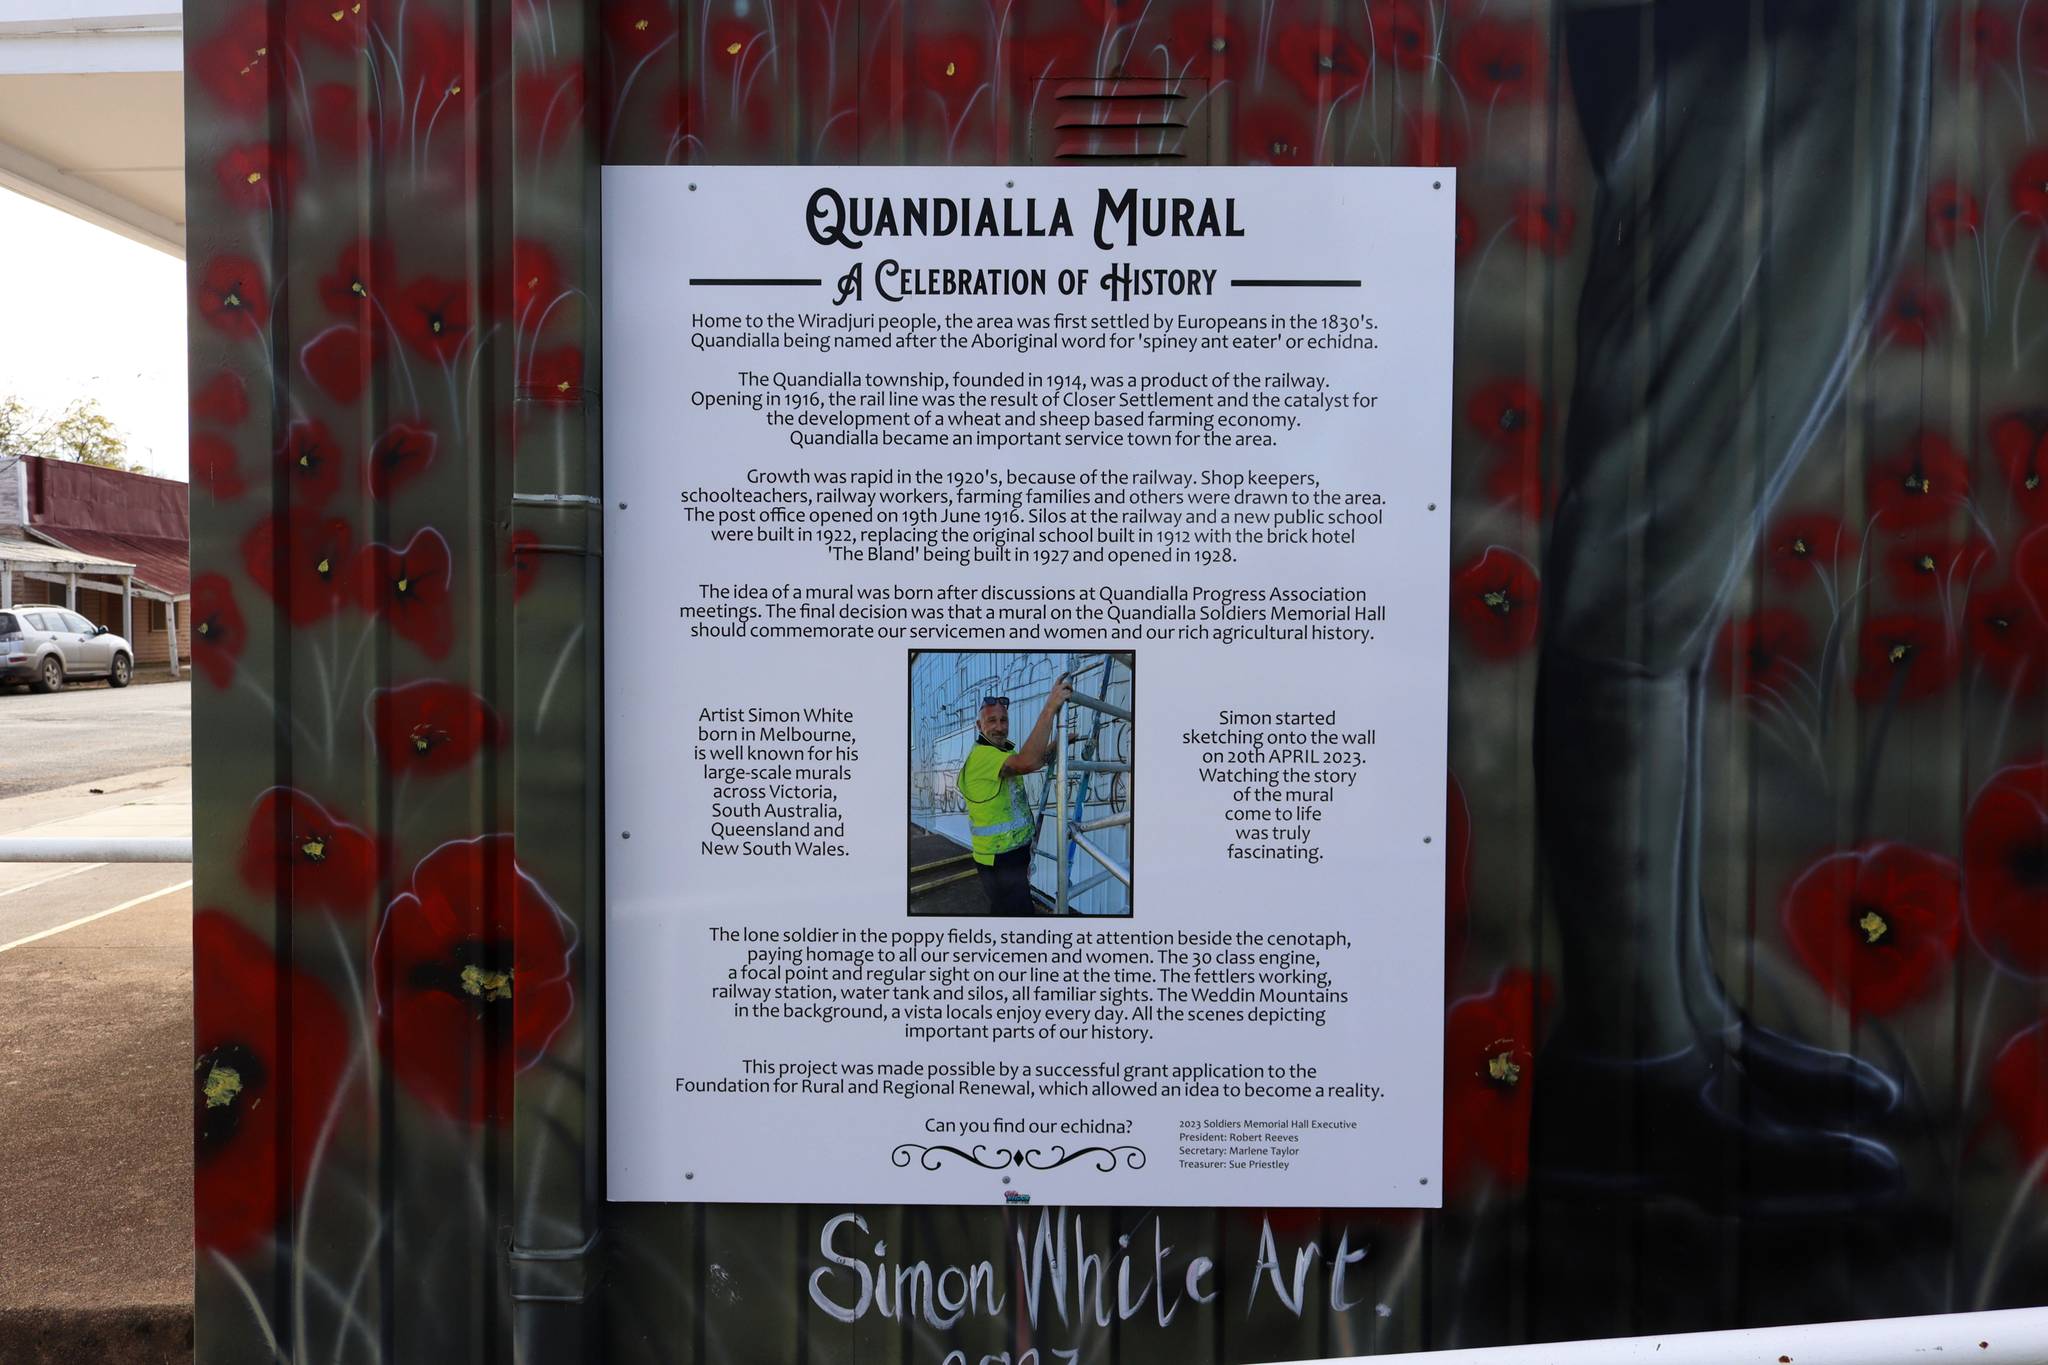 QUANDIALLA MURAL
A CELEBRATION OF HISTORY
Home to the Wiradjuri people, the area was first settled by Europeans in the 1830's.
Quandialla being named after the Aboriginal word for 'spiney ant eater' or echidna.
The Quandialla township, founded in 1914, was a product of the railway.
Opening in 1916, the rail line was the result of Closer Settlement and the catalyst for
the development of a wheat and sheep based farming economy.
Quandialla became an important service town for the area.
Growth was rapid in the 1920's, because of the railway. Shop keepers,
schoolteachers, railway workers, farming families and others were drawn to the area.
The post office opened on 19th June 1916. Silos at the railway and a new public school
were built in 1922, replacing the original school built in 1912 with the brick hotel
'The Bland' being built in 1927 and opened in 1928.
The idea of a mural was born after discussions at Quandialla Progress Association
meetings. The final decision was that a mural on the Quandialla Soldiers Memorial Hall
should commemorate our servicemen and women and our rich agricultural history.
Artist Simon White
born in Melbourne,
is well known for his
large-scale murals
across Victoria,
South Australia,
Queensland and
New South Wales.
Simon started
sketching onto the wall
on 20th APRIL 2023.
Watching the story
of the mural
come to life
was truly
fascinating.
The lone soldier in the poppy fields, standing at attention beside the cenotaph,
paying homage to all our servicemen and women. The 30 class engine,
a focal point and regular sight on our line at the time. The fettlers working,
railway station, water tank and silos, all familiar sights. The Weddin Mountains
in the background, a vista locals enjoy every day. All the scenes depicting
important parts of our history.
This project was made possible by a successful grant application to the
Foundation for Rural and Regional Renewal, which allowed an idea to become a reality.
Can you find our echidna?
2023 Soldiers Memorial Hall Executive
President: Robert Reeves
Secretary: Marlene Taylor
Treasurer: Sue Priestley
Simon White Art.